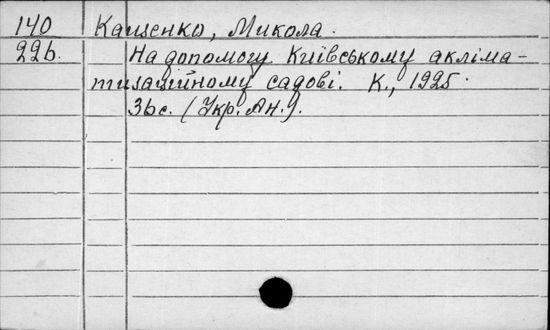 140 Кащенко, Микола.
22б. На допомогу Київському акліма-
тизаційному садові. К., 1925.
36с. (Укр. Ак.).